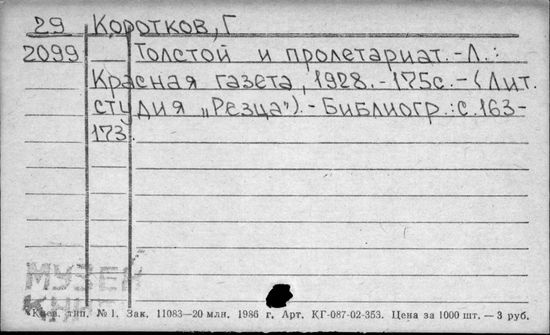 29 Коротков, Г
2099 Толстой и пролетариат.-Л.:
Красная газета, 1928.-175с.-(Лит.
студия „Резца").-Библиогр.: с.163-
173.
МУЗЕЙ
КНИГ
Киев. тип. №1. Зак. 11083—20 млн. 1986 г. Арт. КГ-087-02-353. Цена за 1000 шт. — 3 руб.